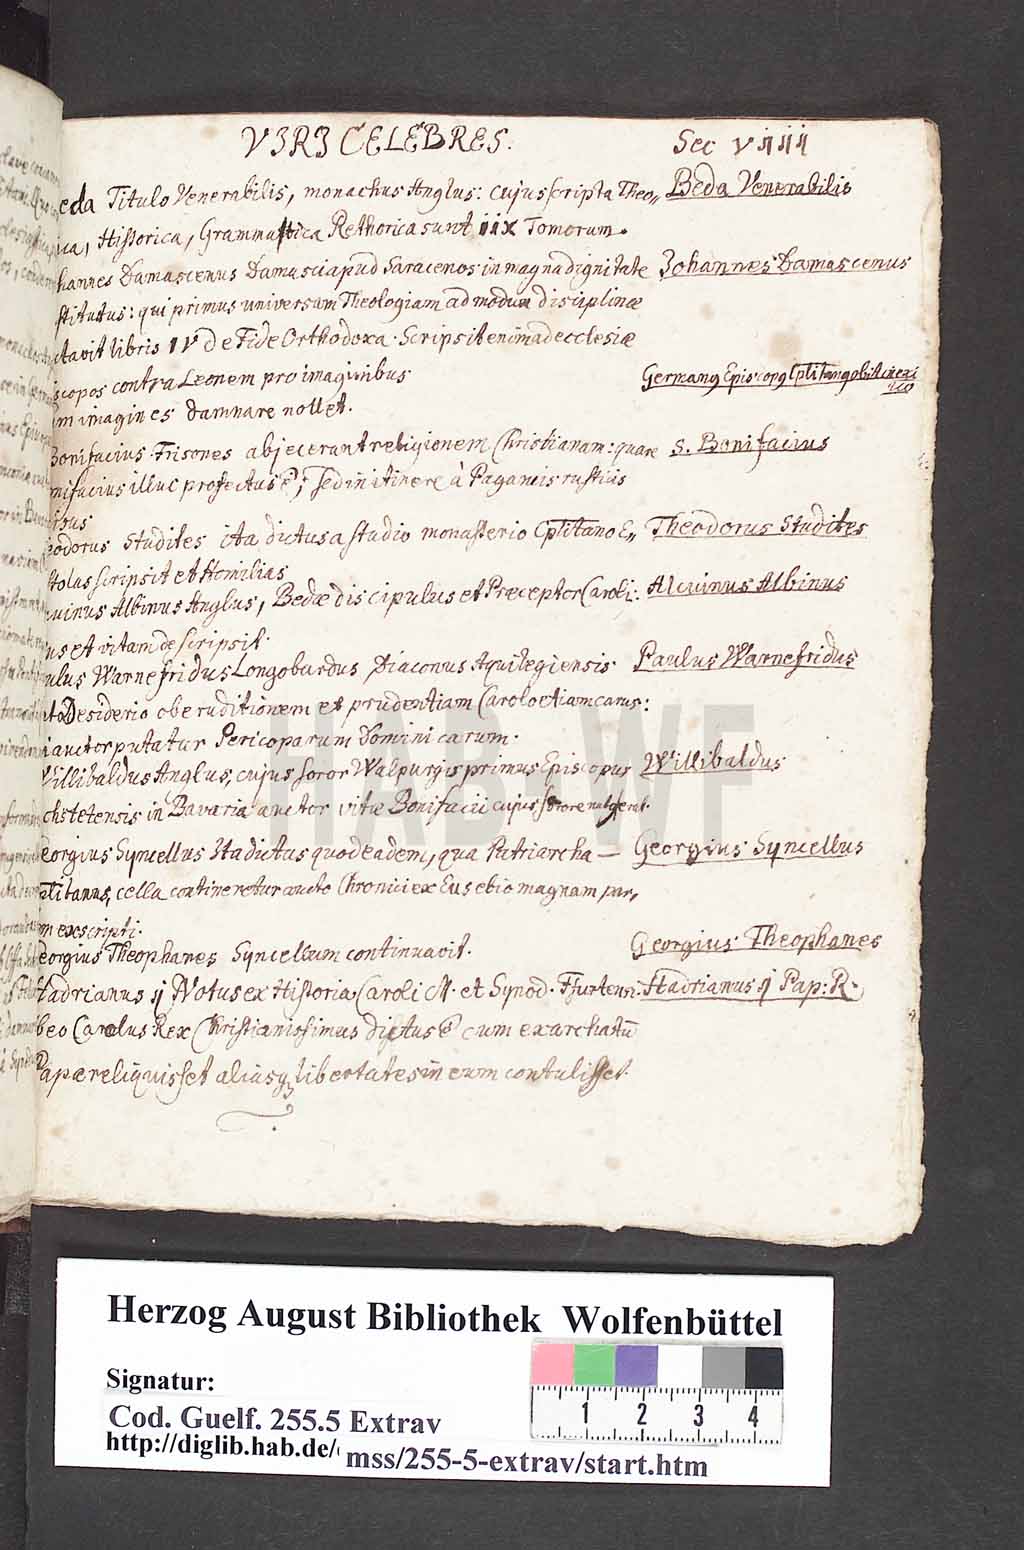 VIRI CELEBRES. Sec VIIII
eda Titulo Venerabilis, monachus Anglus: cujus scripta Theo„ Beda Venerabilis
ica, Historica, Grammatica Rethorica sunt iix Tomorum.
hannes Damascenus Damasci apud Saracenos in magna dignitate Johannes Damascenus
stitutus: qui primus universam Theologiam ad modum disciplinæ
ctavit libris IV de Fide Orthodoxa. Scripsit enim ad ecclesiæ
iscopos contra Leonem pro imaginibus Germanus Episcopus Cptitanus obiit in exi
um imagines damnare nollet. lio
Bonifacius. Frisones abjecerant religionem Christianam: quare S. Bonifacius
nifacius illuc profectus ē; sed in itinere à Paganis rusticis
eodorus Studites ita dictus a studio monasterio Cptitano E„ Theodorus Studites
stolas scripsit et Homilias
uinus Albinus Anglus, Bedæ discipulus et Præceptor Caroli: Alcuinus Albinus
us et vitam descripsit.
ulus Warnefridus Longobardus Diaconus Aquilegiensis Paulus Warnefridus
to Desiderio ob eruditionem et prudentiam Carolo etiam carus:
i auctor putatur Pericoparum Dominicarum.
Willibaldus Anglus, cujus soror Walpurgis primus Episcopus Willibaldus
chstetensis in Bavaria auctor vitæ Bonifacii cujus sorore
eorgius Syncellus Ita dictus quod eadem, qua Patriarcha — Georgius Syncellus
ptitanus, cella contineretur aucto Chronici ex Eusebio magnam par„
m exscripti.
eorgius Theophanes Syncellum continuavit. Georgius Theophanes
Hadrianus ij Notus ex Historia Caroli M. et Synod. Ffurtensi. Hadrianus ij Pap: R.
beo Carolus Rex Christianissimus dictus ē cum exarchatū
Papæ reliquisset aliasq libertates in eum contulisset.
HAB-WF
Herzog August Bibliothek Wolfenbüttel
Signatur:
Cod. Guelf. 255.5 Extrav
http://diglib.hab.de/ mss/255-5-extrav/start.htm
1 2 3 4